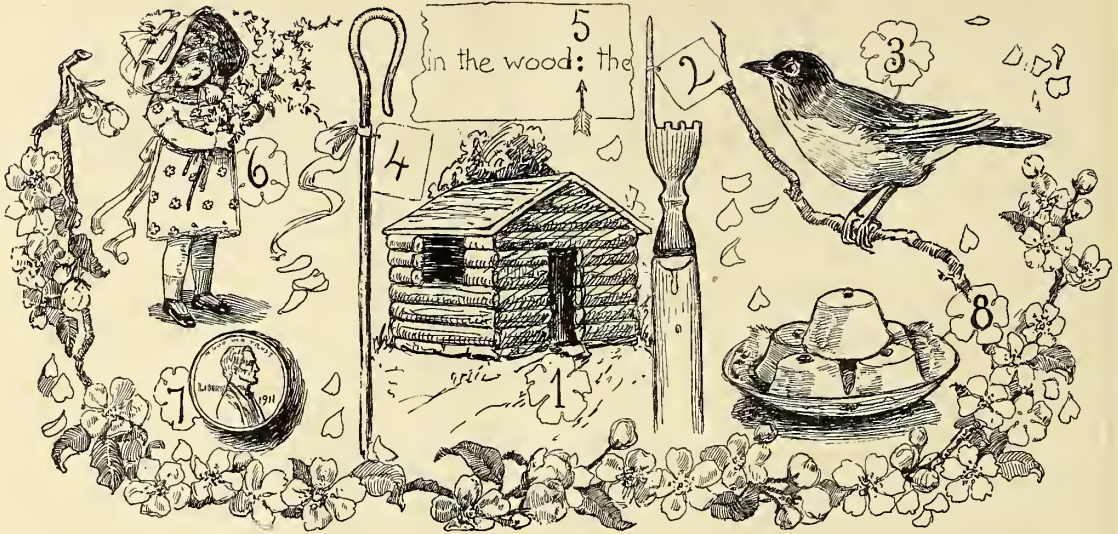 5
in the wood: the
2
3
6
4
8
7
LIBERTY
1911
1